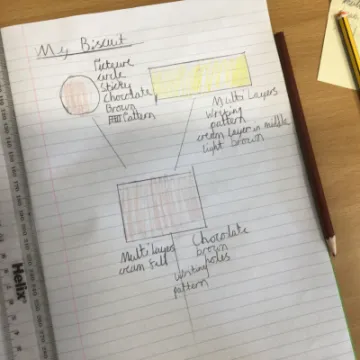 My Biscuit
Picture
circle
Sticky
Chocolate
Brown
Pattern
Multi Layers
writing
pattern
cream layer in middle
light brown
Multilayer
cream full
Chocolate
brown
holes
writing
pattern
Helix